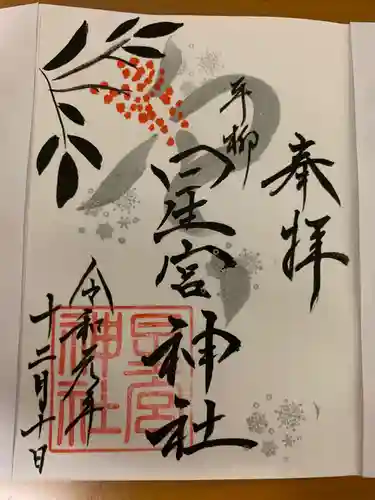 奉拝
平柳
星宮神社
令和元年
十二月十日
星宮神社